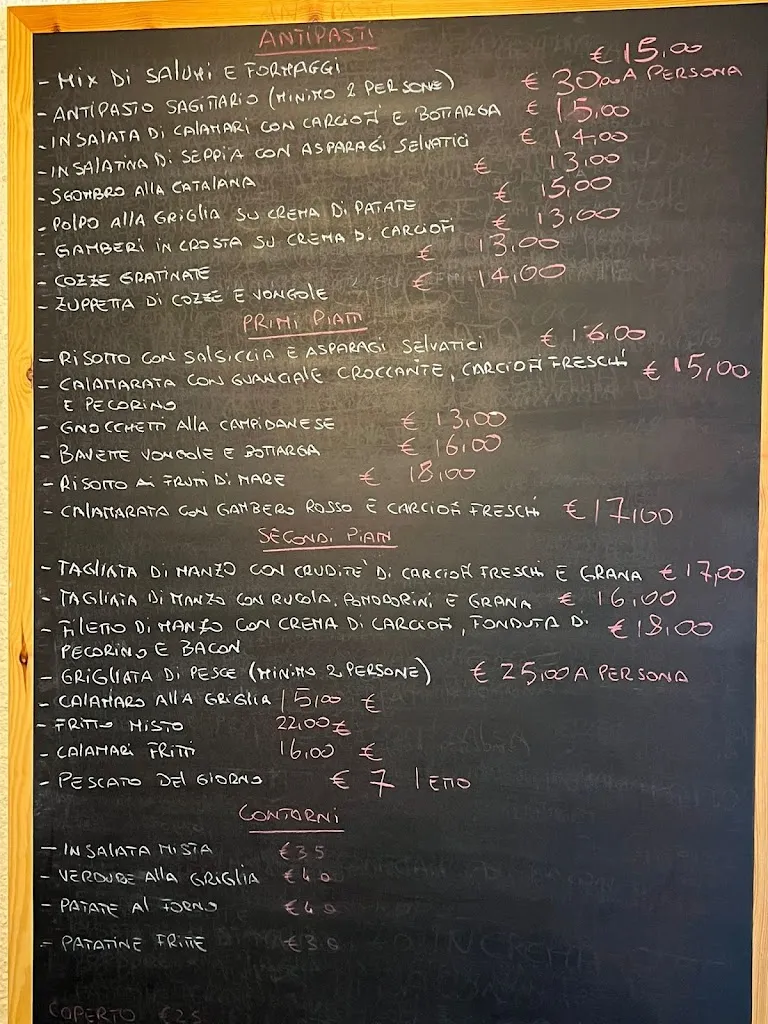 ANTIPASTI
- MIX DI SALUMI E FORMAGGI € 15,00
- ANTIPASTO SAGITTARIO (MINIMO 2 PERSONE) € 30,00 A PERSONA
- INSALATA DI CALAMARI CON CARCIOFI E BOTTARGA € 15,00
- INSALATINA DI SEPPIA CON ASPARAGI SELVATICI € 14,00
- SGOMBRO ALLA CATALANA € 13,00
- POLPO ALLA GRIGLIA SU CREMA DI PATATE € 15,00
- GAMBERI IN CROSTA SU CREMA DI CARCIOFI € 13,00
- COZZE GRATINATE € 13,00
- ZUPPETTA DI COZZE E VONGOLE € 14,00
PRIMI PIATTI
- RISOTTO CON SALSICCIA E ASPARAGI SELVATICI € 16,00
- CALAMARATA CON GUANCIALE CROCCANTE, CARCIOFI FRESCHI € 15,00
E PECORINO
- GNOCCHETTI ALLA CAMPIDANESE € 13,00
- BAVETTE VONGOLE E BOTTARGA € 16,00
- RISOTTO AI FRUTTI DI MARE € 18,00
- CALAMARATA CON GAMBERO ROSSO E CARCIOFI FRESCHI € 17,00
SECONDI PIATTI
- TAGLIATA DI MANZO CON CRUDITE' DI CARCIOFI FRESCHI E GRANA € 17,00
- TAGLIATA DI MANZO CON RUCOLA, POMODORINI E GRANA € 16,00
- FILETTO DI MANZO CON CREMA DI CARCIOFI, FONDUTA DI € 18,00
PECORINO E BACON
- GRIGLIATA DI PESCE (MINIMO 2 PERSONE) € 25,00 A PERSONA
- CALAMARO ALLA GRIGLIA 15,00 €
- FRITTO MISTO 22,00 €
- CALAMARI FRITTI 16,00 €
- PESCATO DEL GIORNO € 7 l'ETTO
CONTORNI
- INSALATA MISTA € 3 5
- VERDURE ALLA GRIGLIA € 4 0
- PATATE AL FORNO € 4 0
- PATATINE FRITTE
COPERTO € 2 5